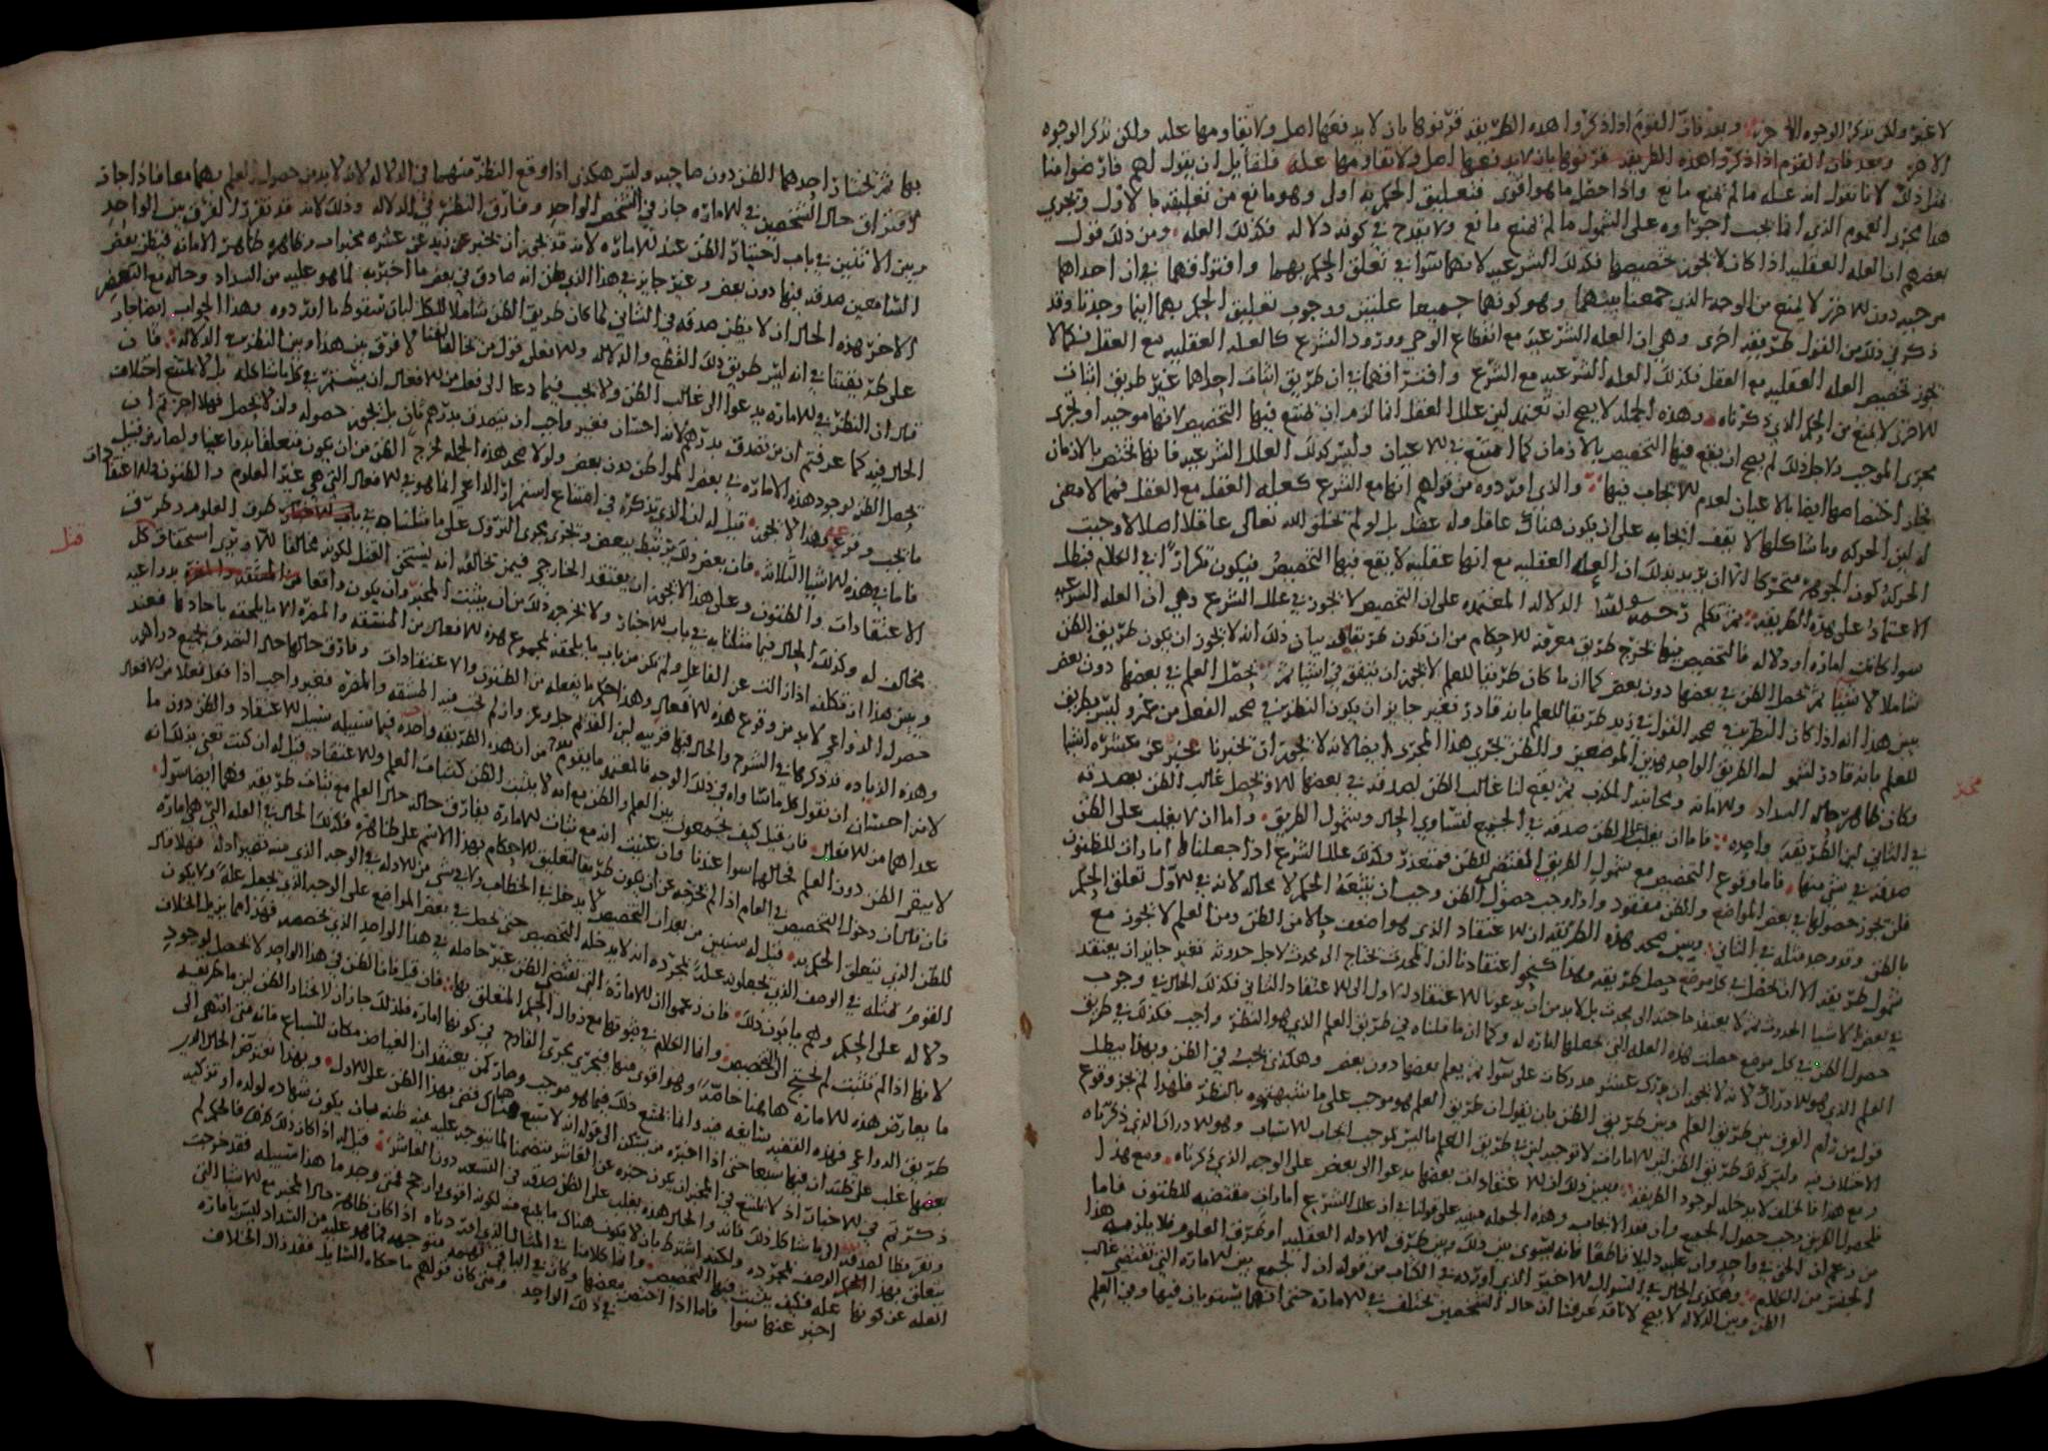 لا غير ولكن نذكر الوجوه الاخر وبعد فان القوم اذا ذكروا هذه الطريقه قرنوها بان لا يدفعها اصل ولا يقاومها عله ولكن نذكر الوجوه
الاخر وبعد فان القوم اذا ذكروا هذه الطريقه قرنوها بان لا يدفعها اصل ولا تقاومها عله فلقايل ان يقول لهم فارضوا منا
مثل ذلك لانا نقول انه عله ما لم يمنع مانع واذا حصل ما هو اقوى فتعليق الحكم به اولى وهو مانع من تعليقه بالاول ويجري
هذا مجرى العموم الذي انما يجب اجراوه على الشمول ما لم يمنع مانع ولا يقدح في كونه دلاله فكذلك العله ومن ذلك قول
بعضهم ان العله العقليه اذا كان لا يجوز تخصيصها فكذلك الشرعيه لانهما سوا في تعلق الحكم بهما وافتراقهما في ان احداهما
موجبه دون الاخرى لا يمنع من الوجه الذي جمعنا بينهما وهو كونهما جميعا علتين ووجوب تعليق الحكم بهما اينما وجدتا وقد
ذكر في ذلك من القول طريقه اخرى وهي ان العله الشرعيه مع انقطاع الوحي وورود الشرع كالعله العقليه مع العقل فكما لا
يجوز تخصيص العله العقليه مع العقل فكذلك العله الشرعيه مع الشرع وافتراقهما في ان طريق اثبات احداهما غير طريق اثبات
الاخرى لا يمنع من الحكم الذي ذكرناه وهذه الجمله لا يصح ان تعتمد لان علل العقل انما لزم ان يمتنع فيها التخصيص لانها موجبه او تجري
مجرى الموجب ولاجل ذلك لم يصح ان يقع فيها التخصيص بالازمان كما امتنع في الاعيان وليس كذلك العلل الشرعيه فانها تختص بالازمان
فجاز اختصاصها ايضا بالاعيان لعدم الايجاب فيها والذي اوردوه من قولهم انها مع الشرع كعله العقل مع العقل فمما لا معنى
له لان الحركه وما شاكلها لا يقف ايجابه على ان يكون هناك عاقل وله عقل بل لو لم يخلق الله تعالى عاقلا اصلا لاوجبت
الحركه كون الجوهر متحركا الا ان يريد بذلك ان العله العقليه مع انها عقليه لا يقع فيها التخصيص فيكون تكرارا في الكلام فبطل
الاعتماد على هذه الطريقه ثم تكلم رحمه الله الدلاله المعتمده على ان التخصيص لا يجوز في علل الشرع وهي ان العله الشرعيه
سوا كانت اماره او دلاله فالتخصيص فيها يخرج طريق معرفه الاحكام من ان تكون طريقا بيان ذلك انه لا يجوز ان يكون طريق الظن
شاملا لاشيا ثم يحصل الظن في بعضها دون بعض كما ان ما كان طريقا للعلم لا يجوز ان يتفق في اشيا ثم يحصل العلم في بعضها دون بعض
يبين هذا انه اذا كان النظر في صحه الفعل في زيد طريقا للعلم بانه قادر فغير جايز ان يكون النظر في صحه الفعل من عمرو ليس بطريق
للعلم بانه قادر لشمول الطريق الواحد لهذين الموضعين والظن يجري هذا المجرى ايضا لانه لا يجوز ان يخبرنا مخبر عن عشره اشيا
وكان ظاهر حاله السداد والامانه ومجانبه الكذب ثم يقع لنا غالب الظن لصدقه في بعضها ولا يحصل غالب الظن بصدقه
في الثاني لان الطريقه واحده فاما ان يغلب على الظن صدقه في الجميع لتساوي الحال وشمول الطريق واما ان لا يغلب على الظن
صدقه في شي منها فاما وقوع التخصيص مع شمول الطريق المقتضي للظن فمتعذر وكذلك علل الشرع اذا جعلناها امارات للظنون
فلن يجوز حصولها في بعض المواضع والظن مفقود واذا وجب حصول الظن وجب ان يتبعه الحكم لا محاله لانه في الاول تعلق الحكم
بالظن وقد وجد مثله في الثاني يبين صحه هذه الطريقه ان الاعتقاد الذي هو اضعف حالا من الظن ومن العلم لا يجوز مع
شمول طريقه الا ان يحصل في كل موضع حصل طريقه ولهذا اعتقادنا ان المحدث يحتاج الى محدث لاجل حدوثه فغير جايز ان يعتقد
في بعض الاشيا الحدوث ثم لا يعتقد حاجته الى محدث بل لا بد من ان يدعونا الاعتقاد الاول الى الاعتقاد الثاني فكذلك الحال في وجوب
حصول الظن في كل موضع حصلت هذه العله التي نجعلها اماره له وكما ان ما قلناه في طريق العلم الذي هو النظر واجب فكذلك في طريق
العلم الذي هو الادراك لانه لا يجوز ان يدرك عشر مدركات على سوا ثم يعلم بعضها دون بعض وهكذى يجب في الظن وبهذا يبطل
قول من رام الفرق بين طريق العلم وبين طريق الظن بان يقول ان طريق العلم هو موجب على ما بالنظر فلهذا لم يجز وقوع
الاختلاف فيه وليس كذلك طريق الظن لان الامارات لا توجب لان في طريق العلم ما ليس بموجب ايجاب الاسباب وهو الادراك الذي ذكرناه
ومع هذا فالخلف لا يدخله لوجود الطريقه يبين ذلك ان الاعتقادات بعضها يدعوا الى بعض على الوجه الذي ذكرناه ومع هذا
فلحصول الطريق وجب حصول الجميع وان فقد الايجاب وهذه الجمله مبنيه على قولنا في ان علل الشرع امارات مقتضيه للظنون فاما
من زعم ان الحق في واحد وان عليه دليلا قاطعا فانه يسوي بين ذلك وبين طرف الادله العقليه او طرق العلوم فلا يلزمه هذا
الجنس من الكلام وهكذى الحال في السوال الاخير الذي اورده في الكتاب من قوله ان الجمع بين الاماره التي تقتضي غالب
الظن وبين الدلاله لا يصح لانا قد عرفنا ان حال الشخصين تختلف في الاماره حتى انهما يستويان فيها وفي العلم
مخبر
بها ثم يختار احدهما الظن دون صاحبه وليس هكذى اذا وقع النظر منهما في الدلاله لانه لا بد من حصول العلم بهما معا فاذا جاز
افتراق حال الشخصين في الاماره جاز في الشخص الواحد وفارق النظر في الدلاله وذلك لانه قد تقرر الفرق بين الواحد
وبين الاثنين في باب اختيار الظن عند الاماره لانه قد يجوز ان يخبر عن زيد عن عشره مخبرات وظاهره ظاهر الامانه فيظن بعض
السامعين صدقه فيها دون بعض وغير جايز في هذا الذي ظن انه صادق في بعض ما اخبر به لما هو عليه من السداد وحاله مع البعض
الاخر هذه الحال ان لا يظن صدقه في الثاني لما كان طريق الظن شاملا للكل فبان سقوط ما اوردوه وهذا الجواب ايضا جار
على طريقتنا في انه ليس طريق ذلك القطع والدلاله وللا فعلى قول من يخالفنا لا فرق بين هذا وبين النظر في الدلاله فان
قال ان النظر في الاماره يدعوا الى غالب الظن ولا يجب فيما دعا الى فعل من الافعال ان يستمر في كل ما شاكله بل لا يمتنع اختلاف
الحال فيه كما عرفتم ان من تصدق بدرهم لانه احسان فغير واجب ان يتصدق بدرهم ثان بل يجوز حصوله وان لا يحصل فهلا اجزتم ان
يحصل الظن لوجود هذه الاماره في بعض المواطن دون بعض ولولا صحه هذه الجمله لخرج الظن من ان يكون متعلقا بدواعينا ولصار من قبيل
ما يجب وقوعه وهذا لا يجوز قيل له ان الذي تذكره في امتناع استمرار الداعي انما هو في الافعال التي هي غير العلوم والظنون والاعتقادات
فاما في هذه الاشيا الثلاثه فان بعض ذلك يرتبط ببعض ويجري مجرى التروك على ما مثلناه في طرق العلوم وطرق
الاعتقادات والظنون وعلى هذا لا يجوز ان يعتقد الخارجي فيمن يخالفه انه يستحق القتل لكونه مخالفا له الا ويرى استحقاق كل
مخالف له وكذلك الحال فيما مثلنا به في باب الاخبار ولا يخرج ذلك من ان يثبت المخير وان يكون واقعا بدواعيه
ويبين هذا ان تكلفه اذا زالت عن الفاعل ولم تكن من باب ما يلحقه لمجموع هذه الافعال من المشقه والمضره الا ما يلحقه باحادها فعند
حصول الدواعي لا بد من وقوع هذه الافعال وهذا حكم ما يفعله من الظنون والاعتقادات وفارق حالها حال التصدق بجميع دراهمه
وهذه الزياده قد ذكرها في الشرح والحال فيها قريبه لان القديم جل وعز وان لم تجب فيه المشقه والمضره فغير واجب اذا فعل فعلا من الافعال
لانه احسان ان يفعل كل ما ساواه في ذلك الوجه فالمعتمد ما تقدم من ان هذه الطريقه واحده فيما سبيله سبيل الاعتقاد والظن دون ما
عداهما من الافعال فان قيل كيف يجمعون بين العلم والظن مع انه لا يثبت الظن كثبات العلم والاعتقاد قيل له ان كنت تعني بذلك انه
لا يبقى الظن دون العلم فحالهما سوا عندنا وان عنيت انه مع ثبات الاماره يفارق حاله حال العلم مع ثبات طريقه فهما ايضا سوا
فان قال ان دخول التخصيص في العام اذا لم يخرجه عن ان يكون طريقا لتعليق الاحكام بهذا الاسم على ظاهره فكذلك الحال في العله التي هي اماره
للظن الذي يتعلق الحكم به قيل له سنبين من بعد ان التخصيص لا يدخل في الخطاب ولا في شي من الادله في الوجه الذي منه تصير ادله فهلا قال
القوم بمثله في الوصف الذي يجعلونه عله بمجرده انه لا يدخله التخصيص حتى يحصل في بعض المواضع على الوجه الذي يجعل عله ولا يكون
دلاله على الحكم وهم يابون ذلك فان زعموا ان الاماره التي تقتضي الظن غير حاصله في هذا الواحد الذي نخصصه فهذا مما يزيل الخلاف
لانها اذا لم تثبت لم يحتج الى التخصيص وانما الكلام في ثبوتها مع زوال الحكم المتعلق بها فان قيل فانا الظن في هذا الواحد لا يحصل لوجود
ما يعارض هذه الاماره هاهنا خاصه وهو اقوى منها فيجري مجرى القادح في كونها اماره فلذلك جاز ان لا يختار الظن لان ما طريقه
طريق الدواعي فهذه القضيه سايغه فيه وانما يمتنع ذلك فيما هو موجب وصار كمن يعتقد ان الغياض مكان للسباع فانه متى انتهى الى
بعضها غلب على ظنه ان فيها سبعا حتى اذا اخبره من يسكن الى قوله ان لا سبع هناك فمتى بهذا الظن على الاول وبهذا تعترض الحال التي
ذكرتم في الاخبار اذ لا يمتنع في المخبر ان يكون خبره عن العاشر متضمنا لما يتوجه عليه فيه ظنه فبان يكون شهاده لولده او تزكيه
وتقريظا لصديقه الى ما شاكل ذلك فانه والحال هذه يغلب على الظن صدقه في التسعه دون العاشر قيل له اذا كان ذلك كذلك فالحكم لم
يتعلق بهذا الوصف بمجرده ولكنه اشترط بان لا يكون هناك ما يمنع منه لكونه اقوى وارجح فمتى وجد ما هذا سبيله فقد خرجت
العله عن كونها عله فكيف يثبت فيها التخصيص وانما كلامنا في المثال الذي اوردناه اذا كان ظاهر حال المخبر مع الاشيا التي
اخبر عنها سوا فاما اذا اختص بعضها وكان في الباقي فيتوجه فما هو عليه من السداد ليس باماره
في ذلك الواحد ومتى كان قولهم ما حكاه السايل فقد زال الخلاف
قيل
٢